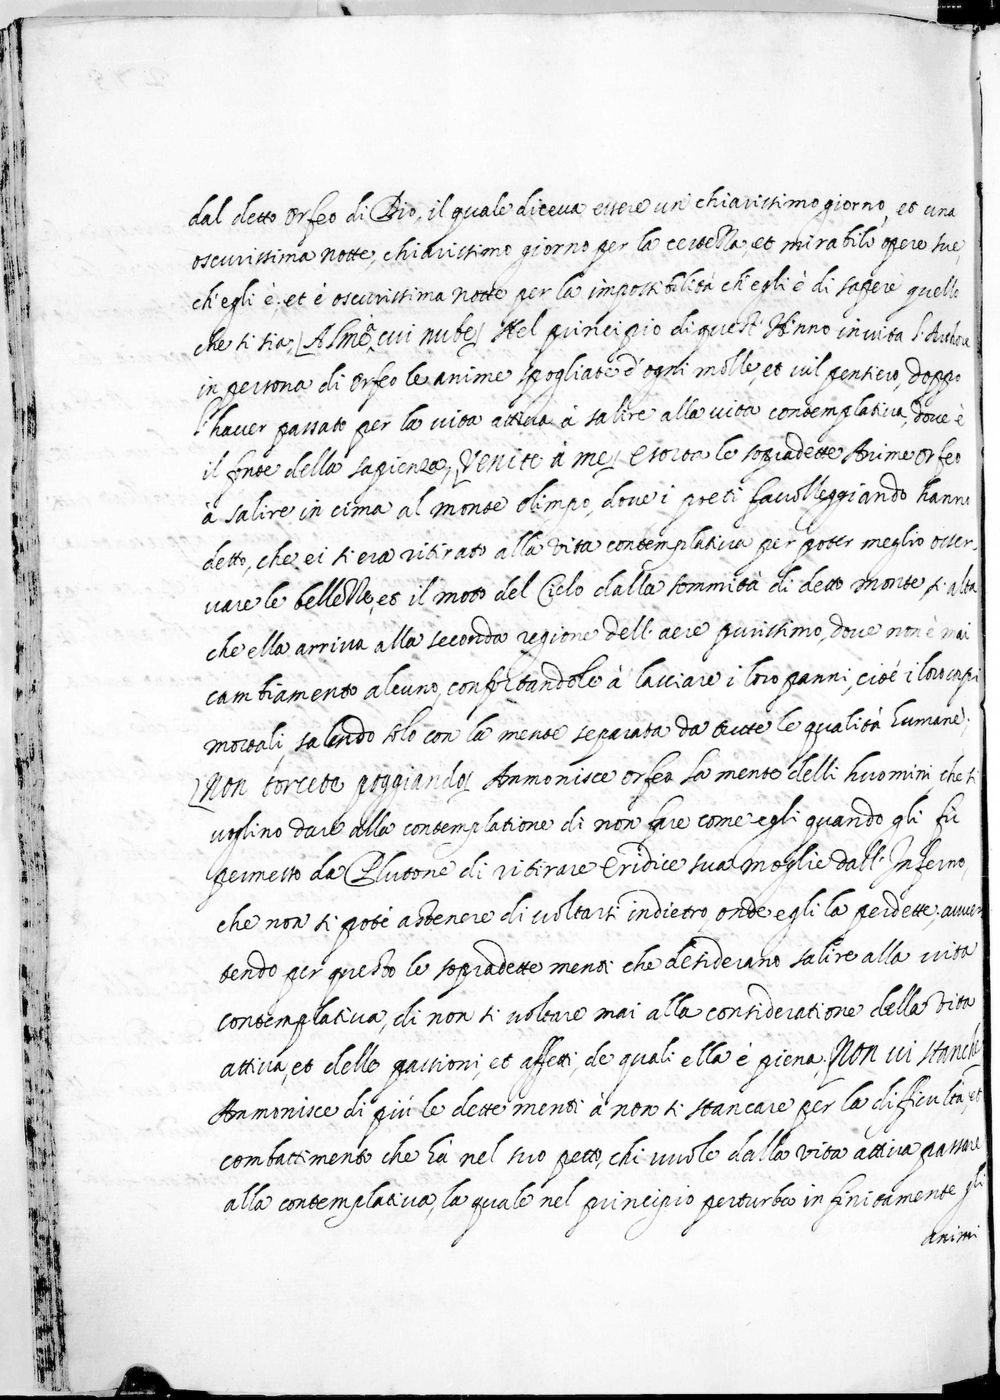 dal detto Orfeo di Dio, il quale diceva essere un chiarissimo giorno, et una
oscurissima notte, chiarissimo giorno per la certezza, et mirabili opere sue,
ch'egli è, et è oscurissima notte per la impossibilità ch'egli è di sapere quello
che si sia. [Alme a cui nube] Nel principio di quest'Hinno invita l'Authore
in persona di Orfeo le anime spogliate d'ogni molle, et vil pensiero, doppo
l'haver passato per la vita attiva à salire alla vita contemplativa, dove è
il fonte della sapienza, [Venite à me] Esorta le sopradette Anime Orfeo
à salire in cima al monte Olimpo, dove i poeti favolleggiando hanno
detto, che ei si era ritirato alla vita contemplativa per poter meglio osser-
vare le bellezze, et il moto del Cielo dalla sommità di detto monte si alta
che ella arriva alla seconda regione dell'aere purissimo, dove non è mai
cambiamento alcuno, confortandole à lasciare i loro panni, cioè i loro corpi
mortali, salendo solo con la mente separata da tutte le qualità humane;
[Non torcete poggiando] Ammonisce Orfeo la mente delli huomini che si
voglino dare alla contemplatione di non fare come egli quando gli fù
permesso da Plutone di ritirare Eridice sua moglie dall'Inferno,
che non si potè astenere di voltarsi indietro, onde egli la perdette, avver
tendo per questo le sopradette menti che desiderano salire alla vita
contemplativa, di non si voltare mai alla consideratione della Vita
attiva, et delle passioni, et affetti, de quali ella è piena, [Non vi stanchi
Ammonisce di più le dette menti à non si stancare per la difficultà, et
combattimento che hà nel suo petto, chi vuole dalla vita attiva passare
alla contemplativa, la quale nel principio perturba infinitamente gli
animi